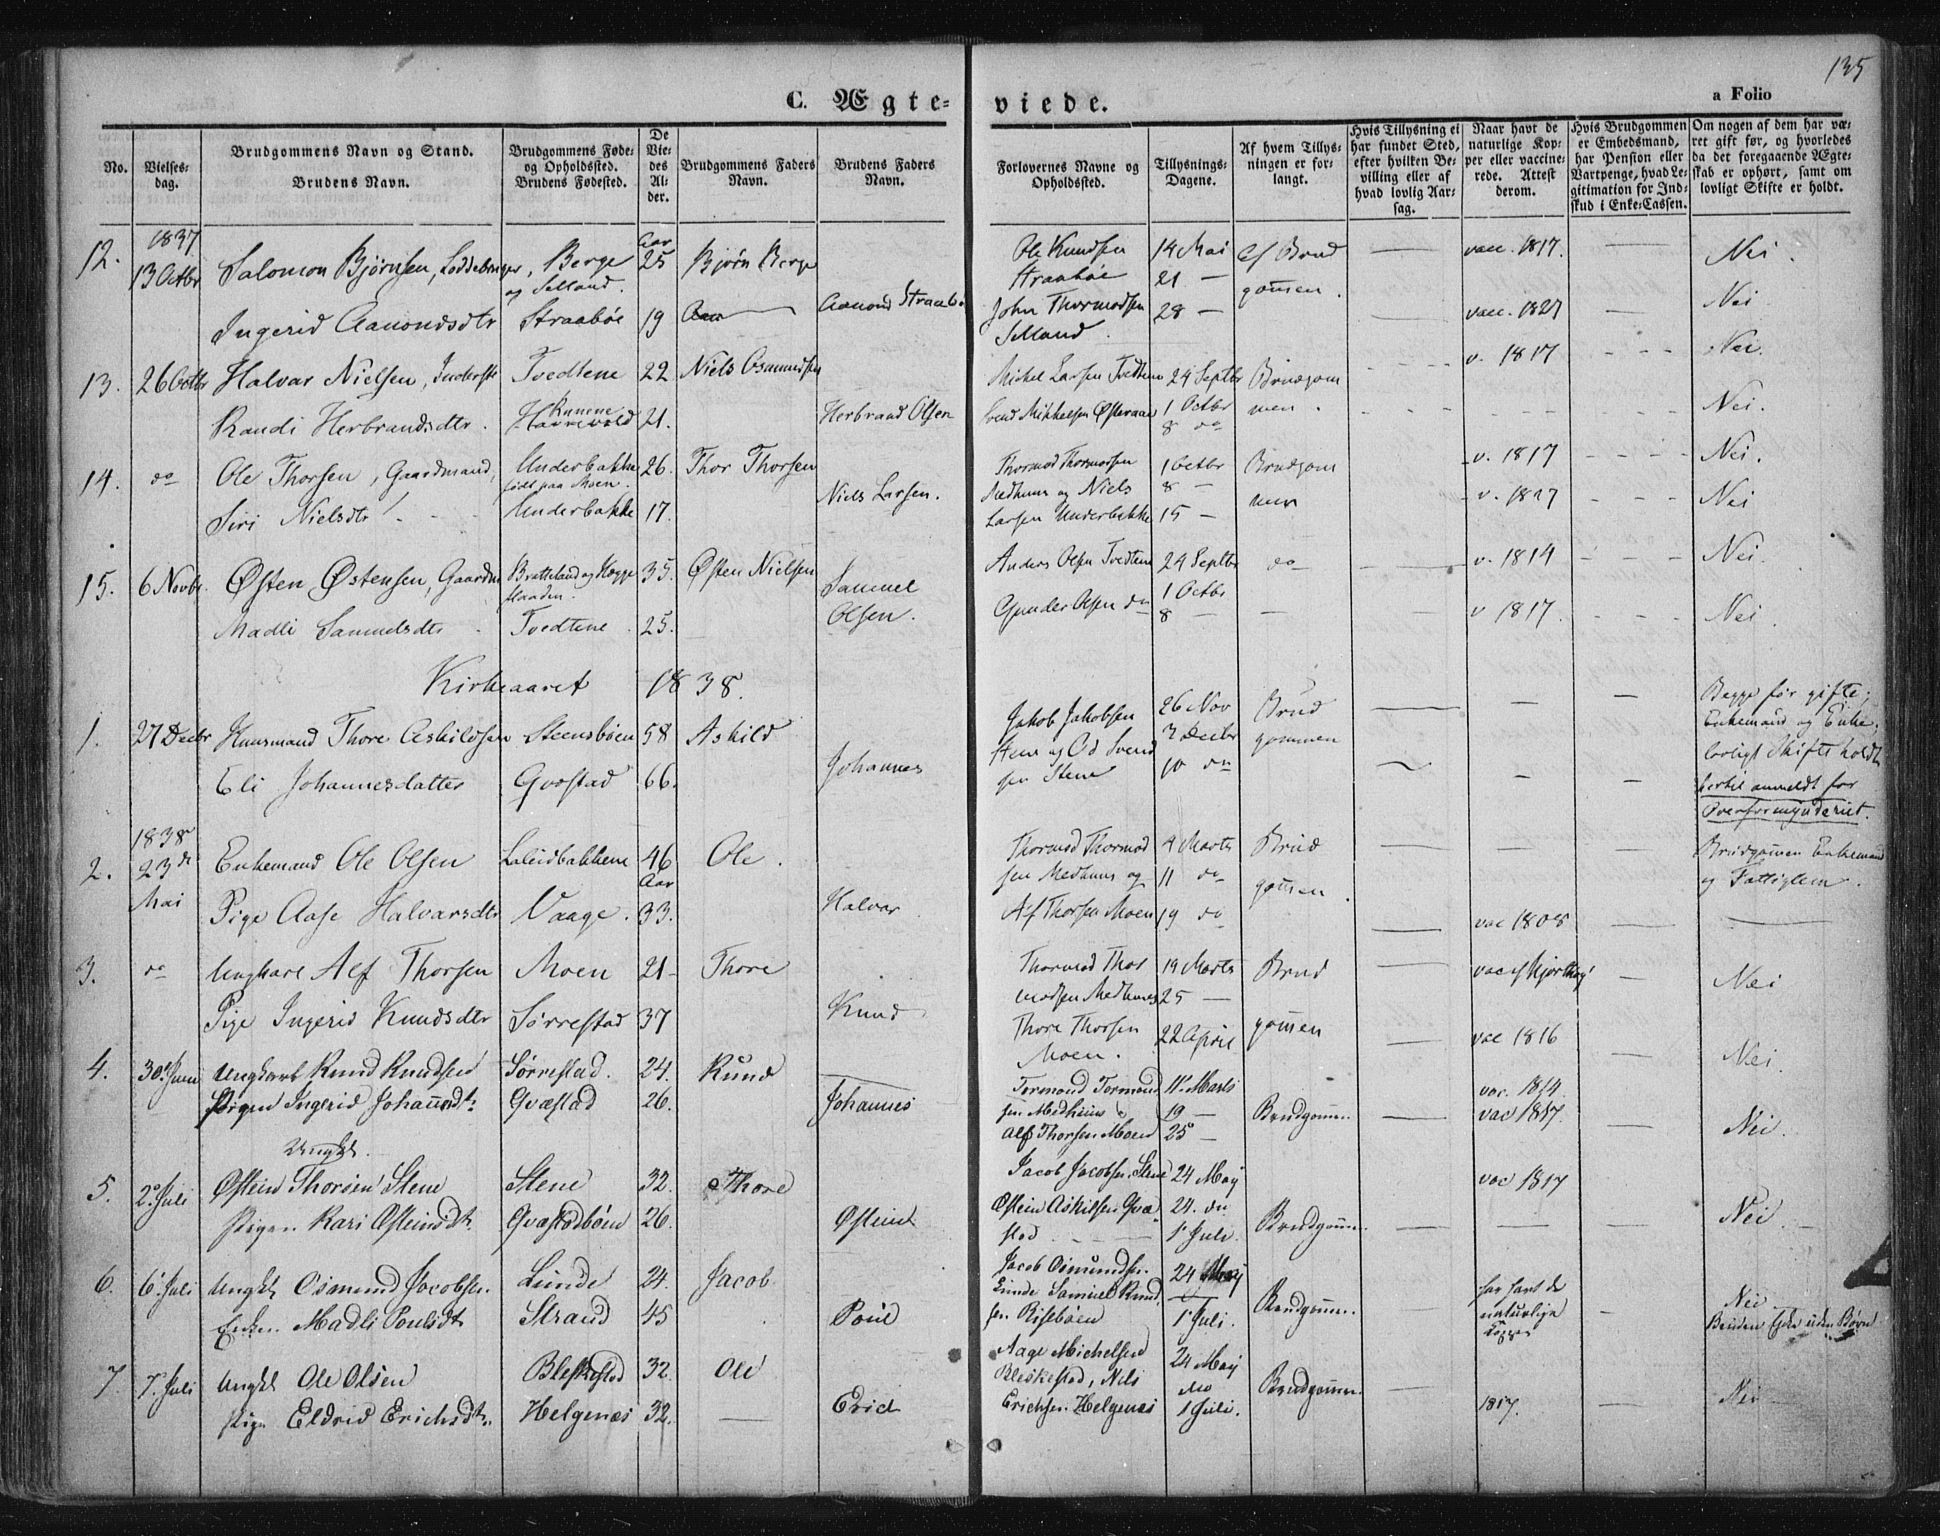 135
C. Ægte- viede.
a Folio
No.
Vielses-
dag.
Brudgommens Navn og Stand.
Brudens Navn.
Brudgommens Føde-
og Opholdssted.
Brudens Fødested.
De
Vie-
des
Al-
der.
Brudgommens Faders
Navn.
Brudens Faders
Navn.
Forlovernes Navne og
Opholdssted.
Tillysnings-
Dagene.
Af hvem Tillys-
ningen er for-
langt.
Hvis Tillysning ei
har fundet Sted,
efter hvilken Be-
villing eller af
hvad lovlig Aar-
sag.
Naar havt de
naturlige Kop-
per eller vaccine-
rede. Attest
derom.
Hvis Brudgommen
er Embedsmand,
har Pension eller
Vartpenge, hvad Le-
gitimation for Ind-
skud i Enke-Cassen.
Om nogen af dem har væ-
ret gift før, og hvorledes
da det foregaaende Ægte-
skab er ophørt, samt om
lovligt Skifte er holdt.
12. 1837 13 Octbr Salomon Bjørnsen, Berge og Selland. Aar 25 Bjørn Berge Ole Knudsen Straabøe 14 Mai 21 — Af Brudgomen. — vacc. 1817. — Nei.
Ingerid Aanondsdtr Straabøe 19 Aanond Straabø John Thormodsen Selland. 28 — vacc. 1827 — Nei
13. 26 Octbr Halvar Nielsen, Inderst Tvedtene 22 Niels Osmundsen Michel Larsen Tvedtene 24 Septbr Brudgommen. v. 1817 Nei.
Randi Herbrandsdtr. 21. Herbrand Olsen Svend Mikkelsen 1 Octbr 8 do Nei.
14. do Ole Thorsen, Gaardmand, Underbakke født paa Moen. 26. Thor Thorsen Thormod Thormodsen Medhuus og Niels 1 Octbr 8 — Brudgommen v. 1817 Nei.
Siri Nielsdtr Underbakke 17. Niels Larsen. Larsen Underbakke 15 — v. 1827 Nei
15. 6 Novbr. Østen Østensen, Gaardm Bratteland og 35. Østen Nielsen Anders Olsen Tvedtene 24 Septbr 1 Octbr do v. 1814 Nei.
Madli Samuelsdtr Tvedtene 25. Samuel Olsen. Gunder Olsen do 8 — v 1817. Nei.
Kirkeaaret 1838.
1. 27 Decbr Huusmand Thore Askildsen Steensbøen 58 Askild Jakob Jakobsen Stene og Od Svendsen Stene 26 Nov 3 Decbr 10 do Brudgommen — — Begge før gifte;
Eli Johannesdatter Qvæstad 66. Johannes Enkemand og Enke;
lovligt Skifte holdt
hertil anmeldt for
Overformynderiet.
2. 1838 23de Mai Enkemand Ole Olsen Laleidbakkene 46 Aar Ole. Thormod Thormodsen Medhuus og 4 Marts 11 do Brudgomen. Brudgomen Enkemand og Fattiglem.
Pige Aase Halvarsdtr Vaage. 33. Halvar Alf Thorsen Moen 19 do vac 1808 —
3. do Ungkarl Alf Thorsen Moen 21 Thore Thormod Thormodsen Medhuus 19 Marts 25 — Brudgomen — vac Nei
Pige Ingerid Knudsdtr Sørrestad 37 Knud Thore Thorsen Moen. 22 April vac 1816 — Nei.
4. 30. Juni Ungkarl Knud Knudsen Sørrestad. 24. Knud Tormond Tormondsen Medheim 11. Marts 19 — Brudgomn. — vac. 1814
Pigen Ingerid Johannsdtr. Qvæstad 26. Johannes Alf Thorsen Moen 25 — vac 1817. Nei.
5. 2. Juli Ungkl. Østein Thorsen Stene Stene 32. Thore Jacob Jacobsen Stene 24 Maij vac 1817
Pigen Kari Østeinsdtr. Qvæstadbøen 26. Østein Østein Askilsen Qvæstad 24. do 1 Juli Brudgomn. — — — Nei.
6. 6. Juli Ungkl Osmund Jacobsen. Lunde 24. Jacob Jacob Osmundsen. Lunde Samuel Knudsen. Risebøen 24 Maij 1 Juli. Brudgomn. har havt de naturlige Kopper — Nei
Enken Madli Poulsdtr Strand 45 Poul Bruden Enke uden Børn
7. 7. Juli Ungkl Ole Olsen Bleskestad 32. Ole Aage Michelsen Bleskestad, Nils 24 Maij Brudgomn. —
Pige Eldrid Erichsdtr. Helgenæs 32. Erich Erichsen Helgenæs 1 Juli. 1817. — Nei